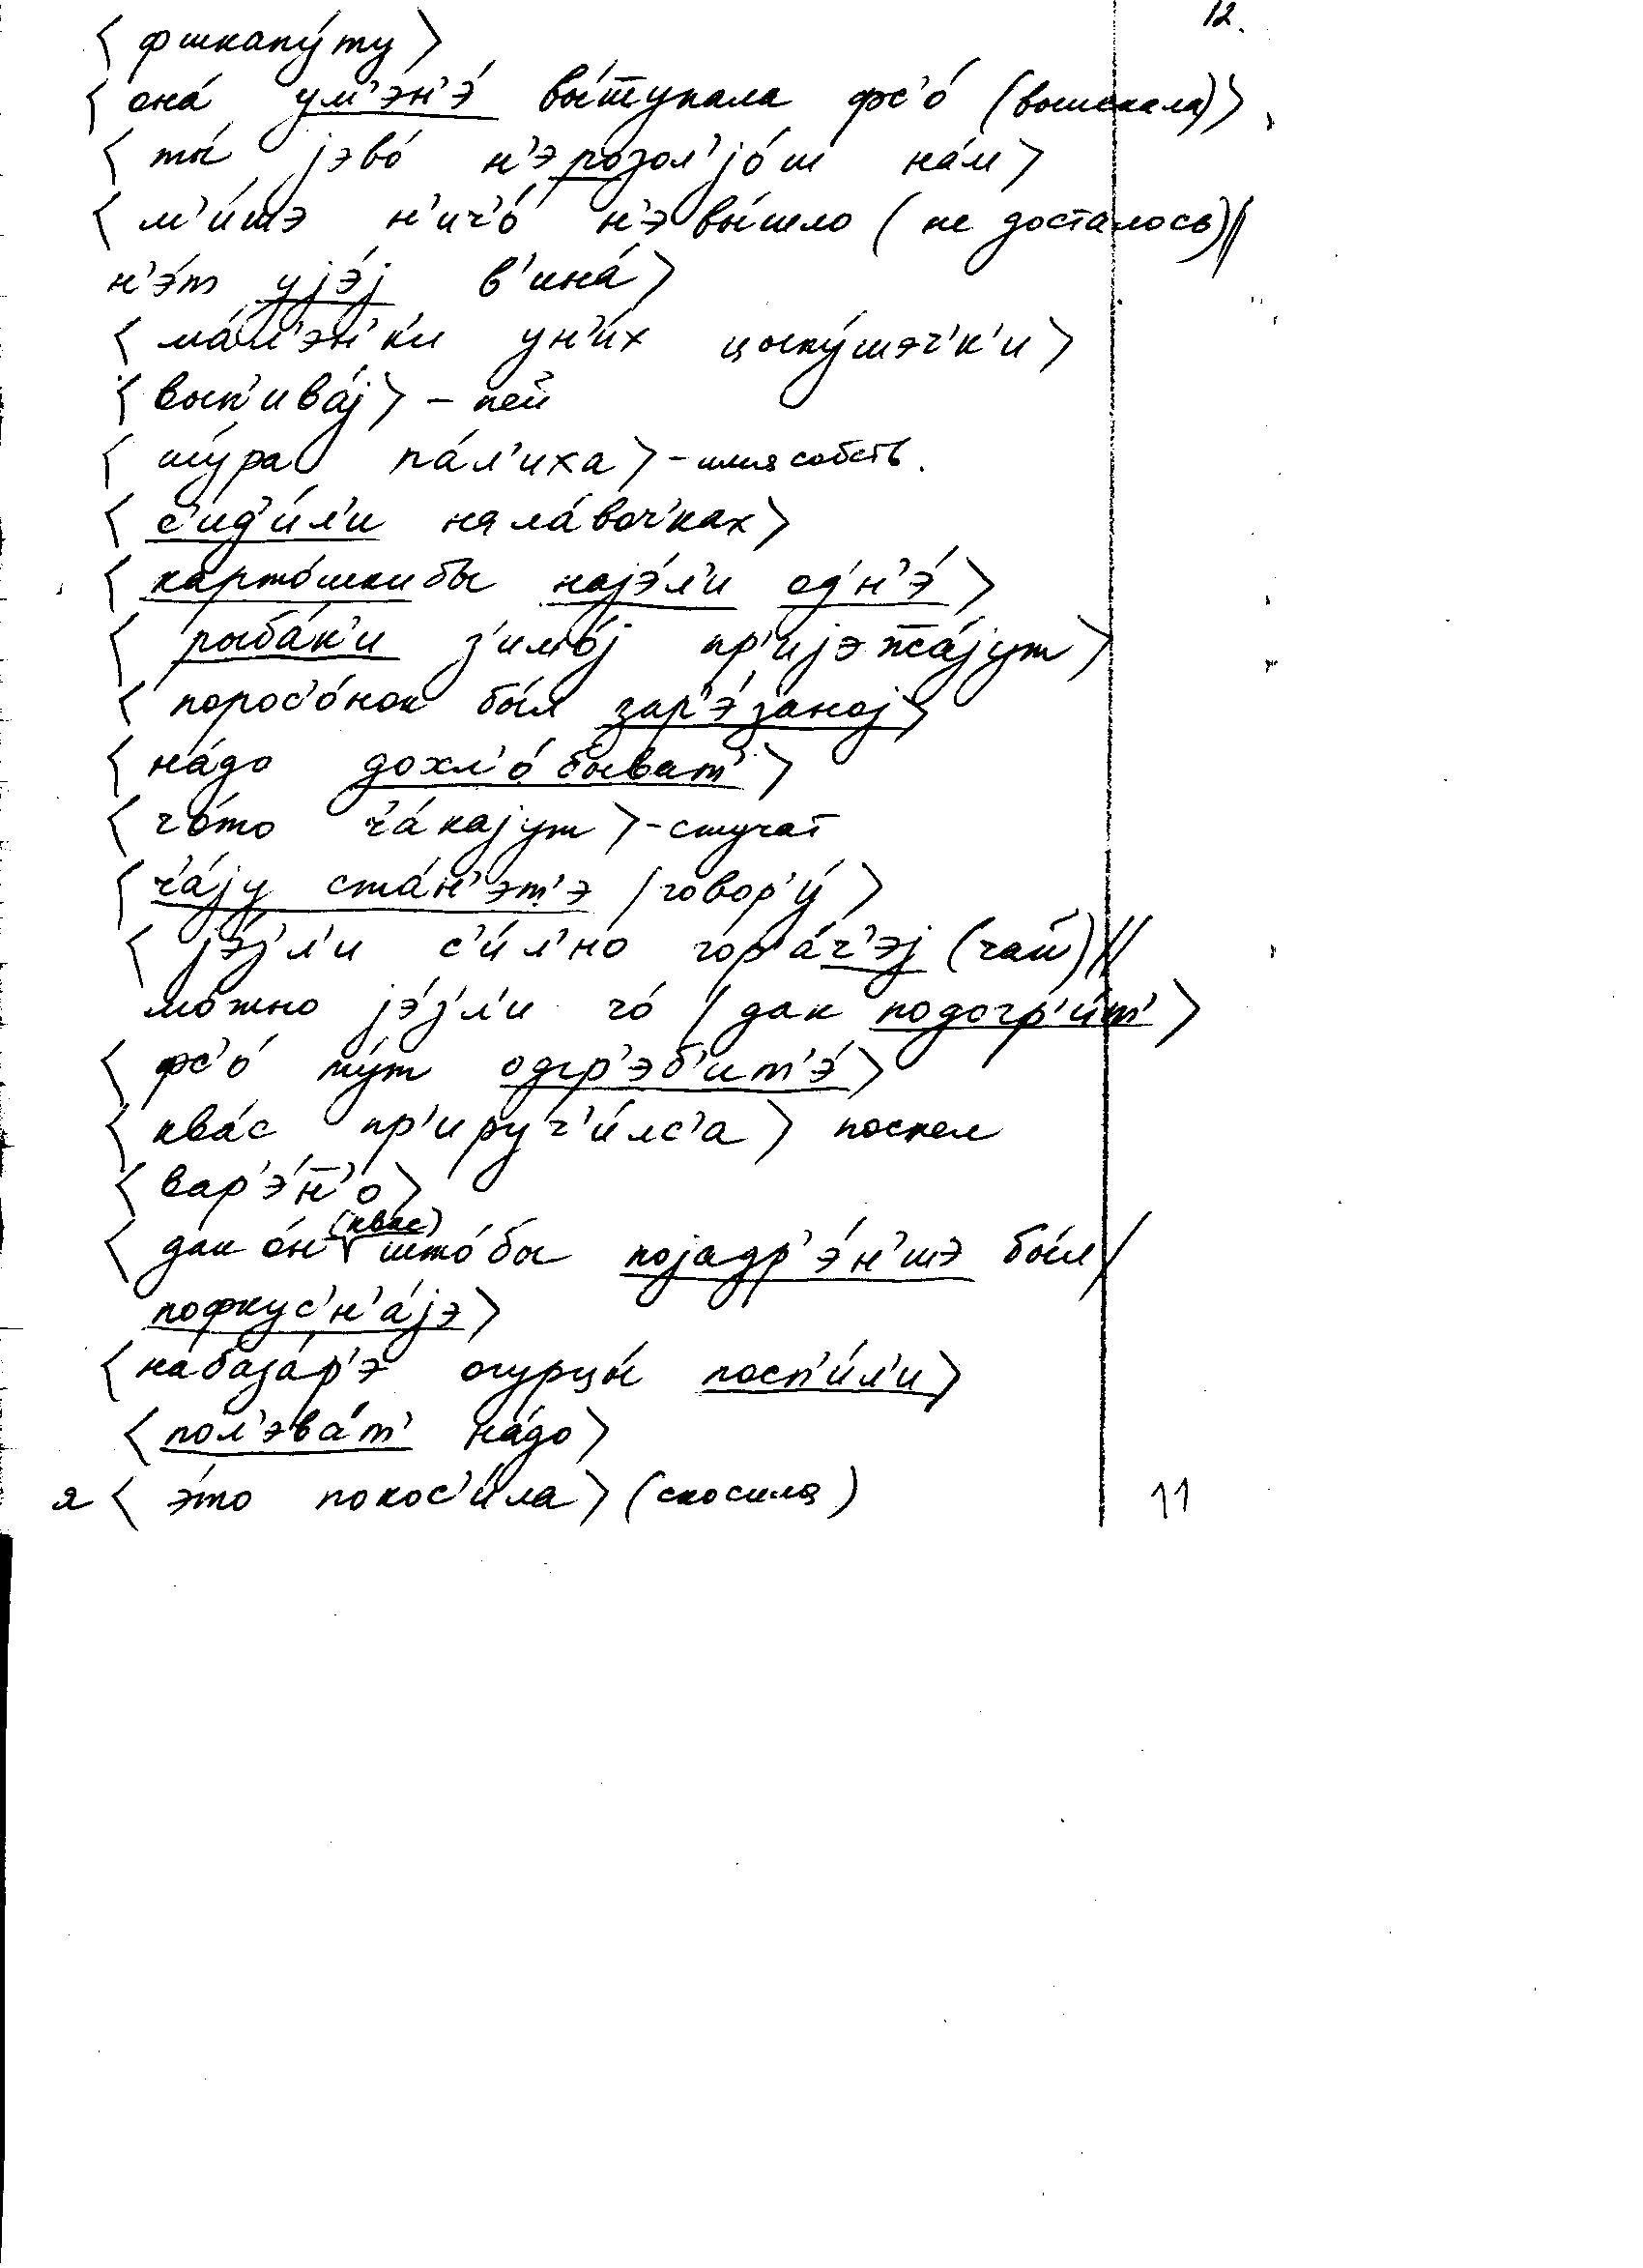 12.
⟨ фшкапу́ту ⟩
⟨ она́ ум'э́н'э́ вы́т̄укала фс'о́ (вышекала) ⟩
⟨ ты́ јэво́ н'эрозол'јо́ш на́м ⟩
⟨ м'и́шэ н'ич'о́ н'эвы́шло ( не досталось) //
н'э́т ујэ́ј в'ина́ ⟩
⟨ ма́л'эн'к'и ун'и́х цыпу́шэч'к'и ⟩
⟨ вып'ива́ј ⟩ – пей
⟨ шу́ра па́л'иха ⟩ – имя собств.
⟨ с'ид'и́л'и нала́воч'ках ⟩
⟨ карто́шкибы најэ́л'и од'н'э́ ⟩
⟨ рыба́к'и з'имо́ј пр'ијэж̄а́јут ⟩
⟨ порос'о́нок бы́л зар'э́заној ⟩
⟨ на́до дохл'о́быват' ⟩
⟨ ч'о́то ч'а́кајут ⟩ – стучат
⟨ ч'а́ју ста́н'эт'э / говор'у́ ⟩
⟨ јэ́з'л'и с'и́л'но гор'а́ч'эј (чай) //
мо́жно јэ́з'л'и ч'о́ / дак подогр'и́т' ⟩
⟨ фс'о́ ту́т одгр'эб'ит'э́ ⟩
⟨ ква́с пр'ируч'и́лс'а ⟩ поспел
⟨ вар'э́н̄'о ⟩
⟨ дак о́н (квас) што́бы појадр'э́н'шэ бы́л /
пофкус'н'а́јэ ⟩
⟨ набаза́р'э огурцы́ посп'и́л'и ⟩
⟨ пол'эва́т' на́до ⟩
я ⟨ э́то покос'и́ла ⟩ (скосила)
11